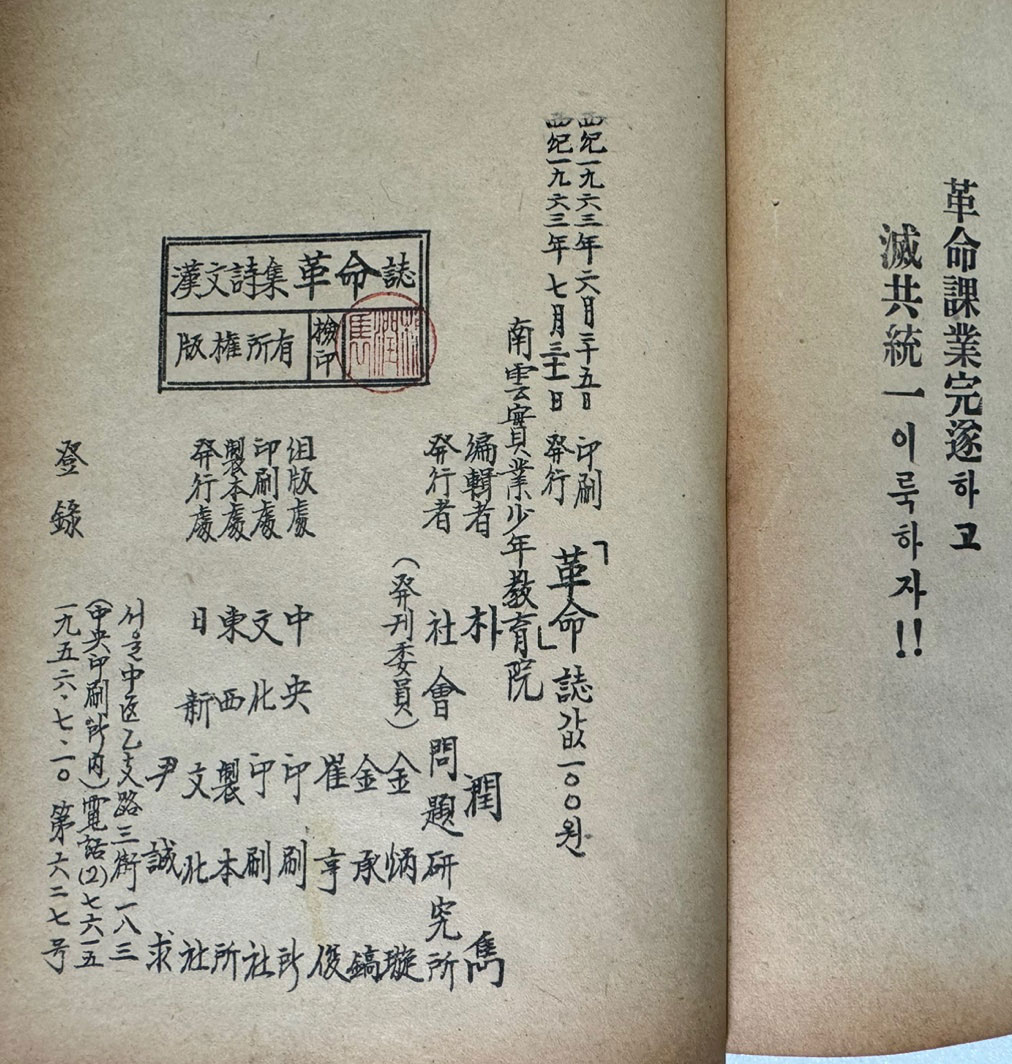 革命課業完遂하고
滅共統一이룩하자!!
西紀一九六三年六月二十五日 印刷
西紀一九六三年七月三十一日 発行
「革命」誌값一〇〇원
南雲實業少年敎育院
編輯者 朴潤雋
発行者 社會問題硏究所
(発刊委員) 金炳璇
金承鎬
崔亨俊
组版處 中央印刷所
印刷處 文化印刷社
製本處 東西製本所
発行處 日新文化社
尹誠求
서울中区乙支路三街一八三
(中央印刷所內)電話(2)七六一五
登錄 一九五六·七·一〇 第六二七号
漢文詩集革命誌
版權所有
檢印